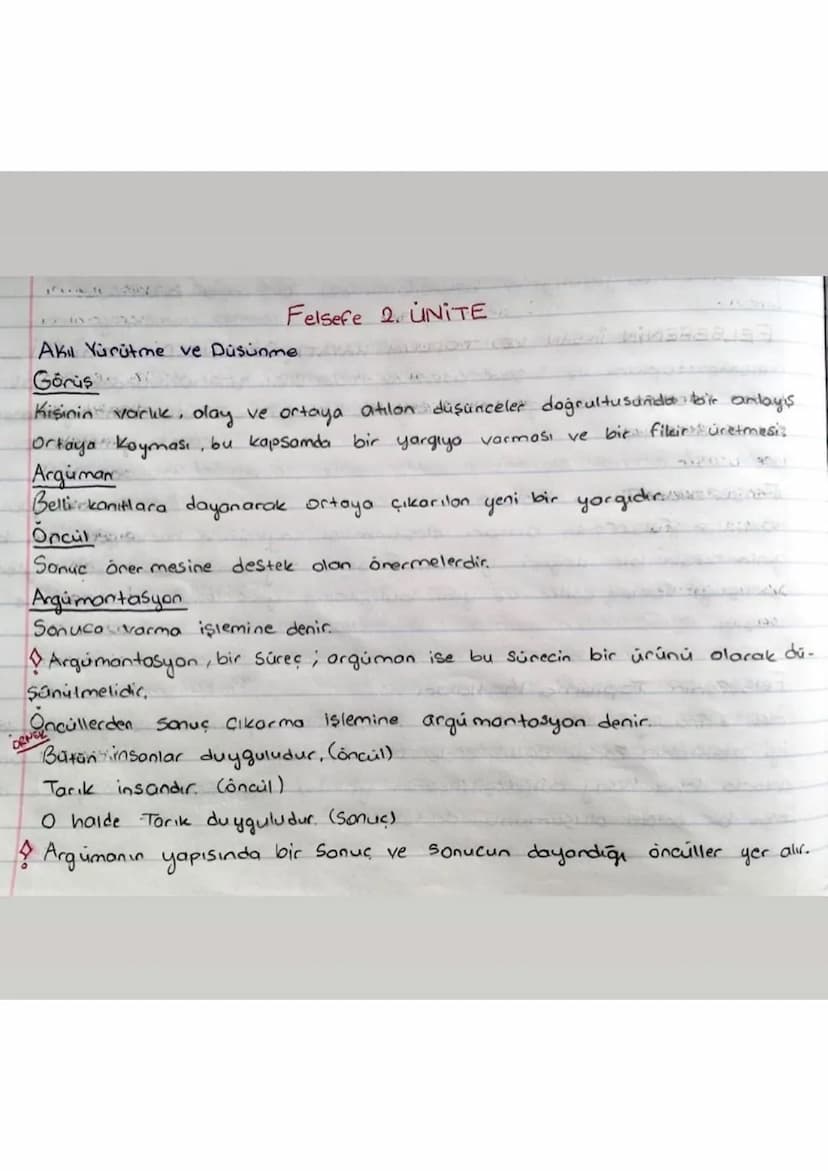 Felsefe 2. ÜNİTE
Akıl Yürütme ve Düşünme
Görüş
Kişinin varlık, olay ve ortaya atılan düşünceler doğrultusunda bir anlayış
ortaya koyması, bu kapsamda bir yargıya varması ve bir fikir üretmesi.
Argüman
Belli kanıtlara dayanarak ortaya çıkarılan yeni bir yargıdır.
Öncül
Sonuç önermesine destek olan önermelerdir.
Argümantasyon
Sonuca varma işlemine denir.
Argümantasyon, bir süreç; argüman ise bu sürecin bir ürünü olarak dü-
şünülmelidir.
Öncüllerden sonuç çıkarma işlemine argümantasyon denir.
ÖRNEK
Bütün insanlar duyguludur. (öncül)
Tarık insandır. (öncül)
O halde Tarık duyguludur. (Sonuç)
Argümanın yapısında bir sonuç ve sonucun dayandığı öncüller yer alır.